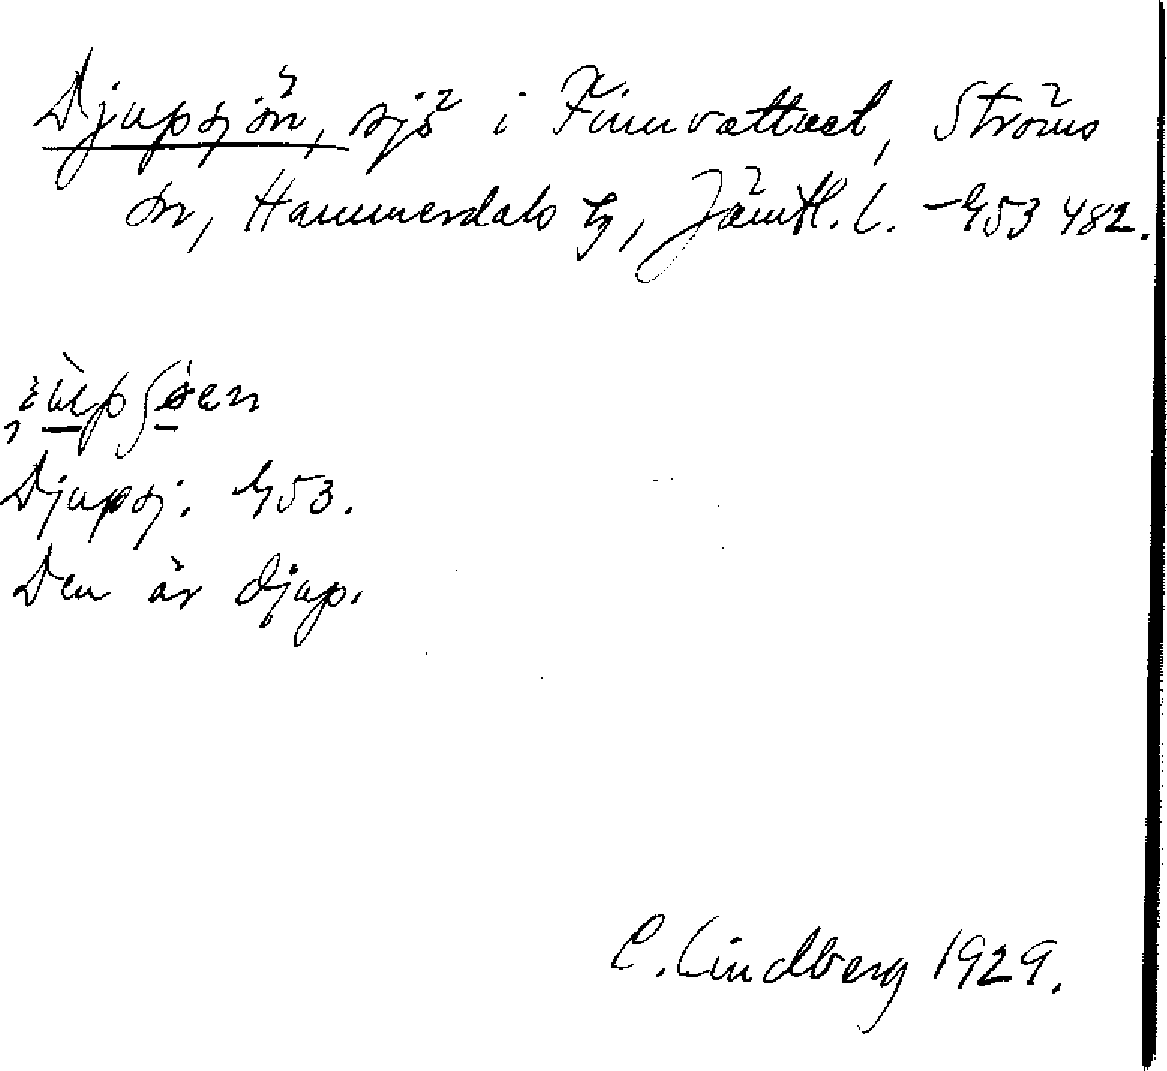 Djupsjön, sjö i Finnvattnet, Ströms
sn, Hammerdals tg, Jämtl. l. – G53 482.
Djupsj. G53.
Den är djup.
C. Lindberg 1929.